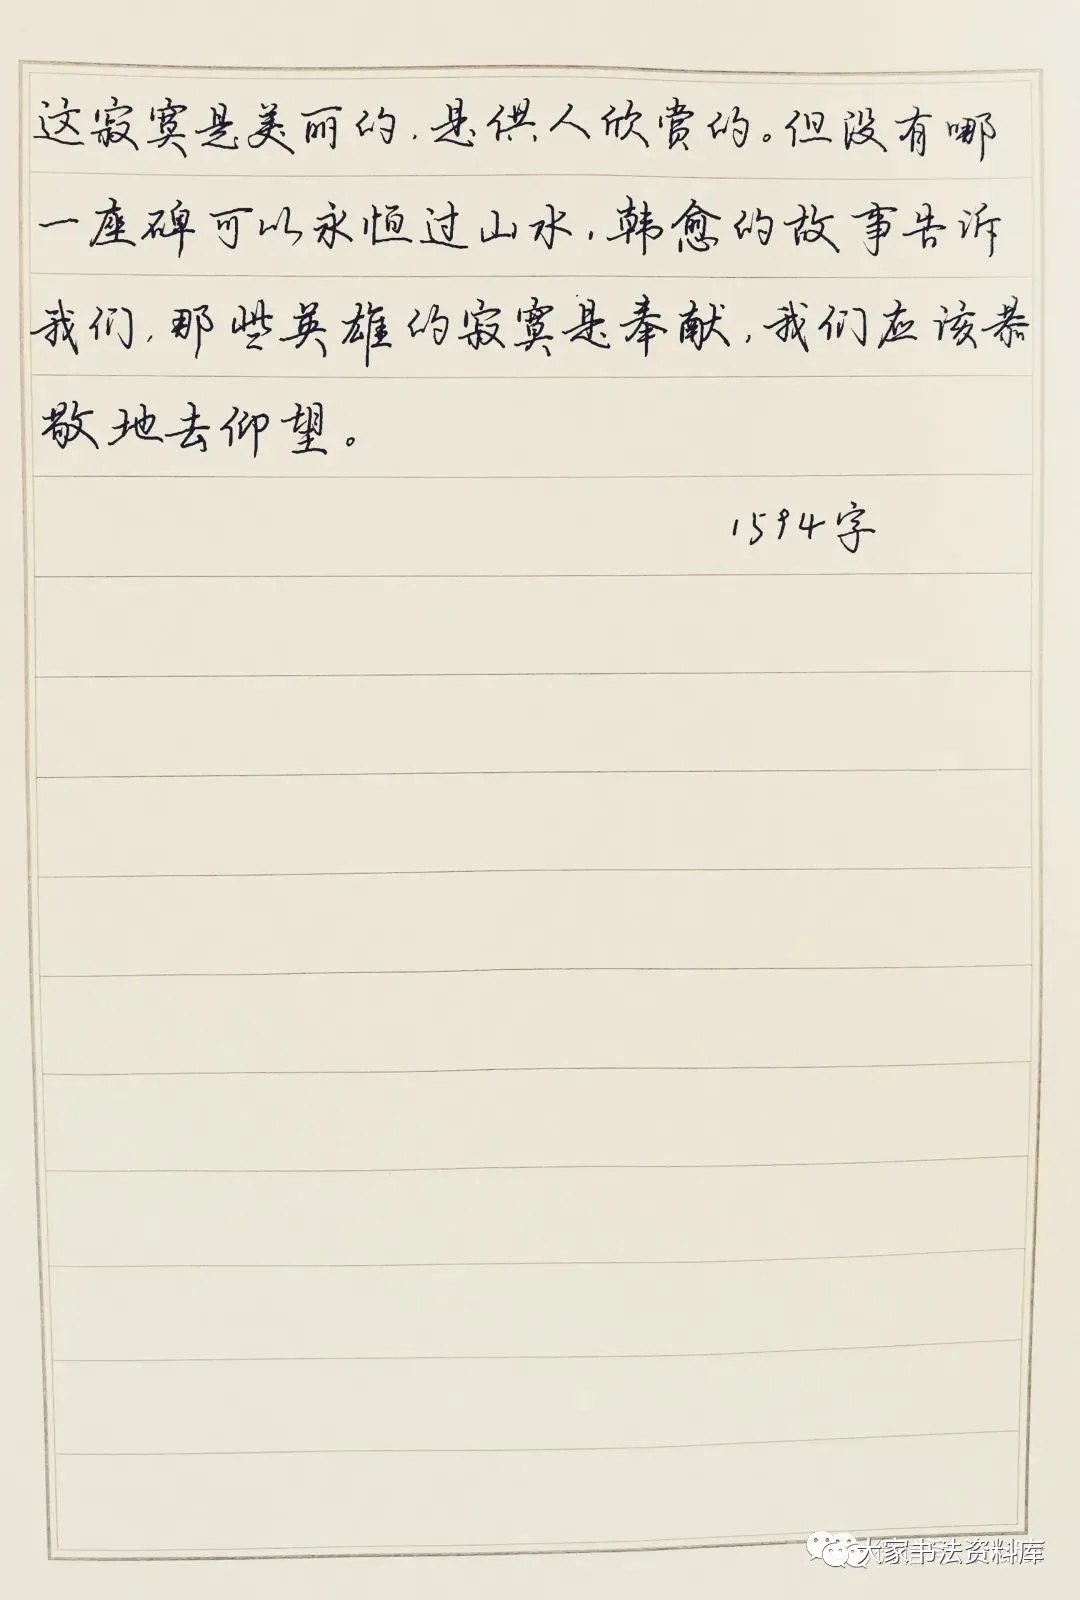 这寂寞是美丽的，是供人欣赏的。但没有哪
一座碑可以永恒过山水，韩愈的故事告诉
我们，那些英雄的寂寞是奉献，我们应该恭
敬地去仰望。
1594字
大家书法资料库